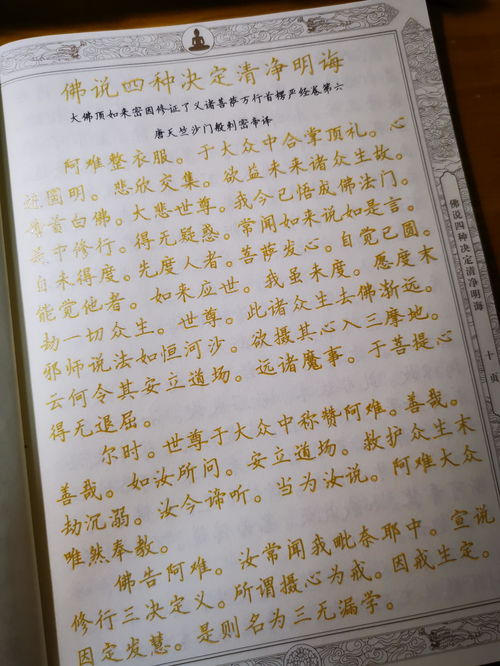 佛说四种决定清净明诲
大佛顶如来密因修证了义诸菩萨万行首楞严经卷第六
唐天竺沙门般剌密帝译
阿难整衣服。于大众中合掌顶礼。心
迹圆明。悲欣交集。欲益未来诸众生故。
稽首白佛。大悲世尊。我今已悟成佛法门。
是中修行。得无疑惑。常闻如来说如是言。
自未得度。先度人者。菩萨发心。自觉已圆。
能觉他者。如来应世。我虽未度。愿度末
劫一切众生。世尊。此诸众生去佛渐远。
邪师说法如恒河沙。欲摄其心入三摩地。
云何令其安立道场。远诸魔事。于菩提心
得无退屈。
尔时。世尊于大众中称赞阿难。善哉。
善哉。如汝所问。安立道场。救护众生末
劫沉溺。汝今谛听。当为汝说。阿难大众
唯然奉教。
佛告阿难。汝常闻我毗奈耶中。宣说
修行三决定义。所谓摄心为戒。因戒生定。
因定发慧。是则名为三无漏学。
佛说四种决定清净明诲